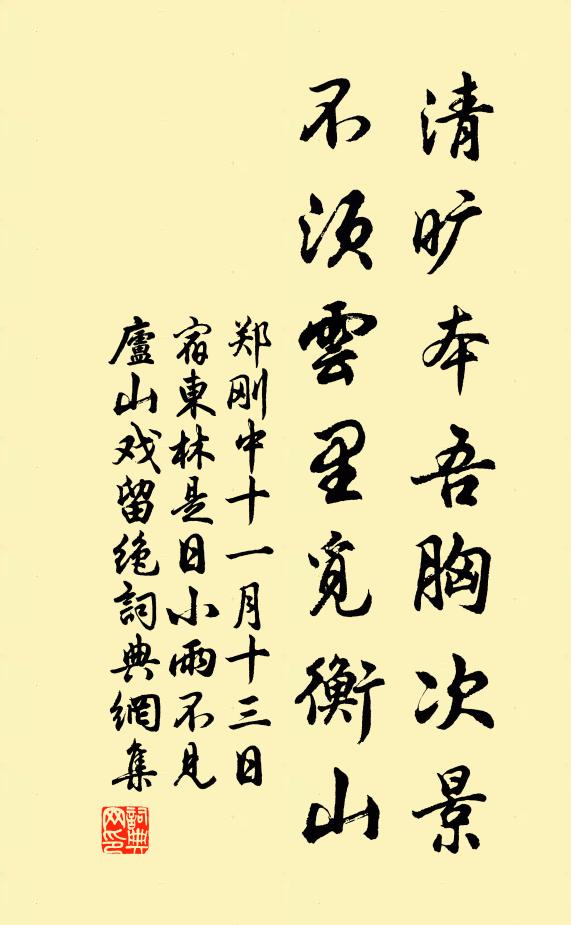 清旷本吾胸次景
不须雲里觅衡山
郑刚中十一月十三日
宿東林是日小雨不見
廬山戏留绝詞典網集
詞典网印